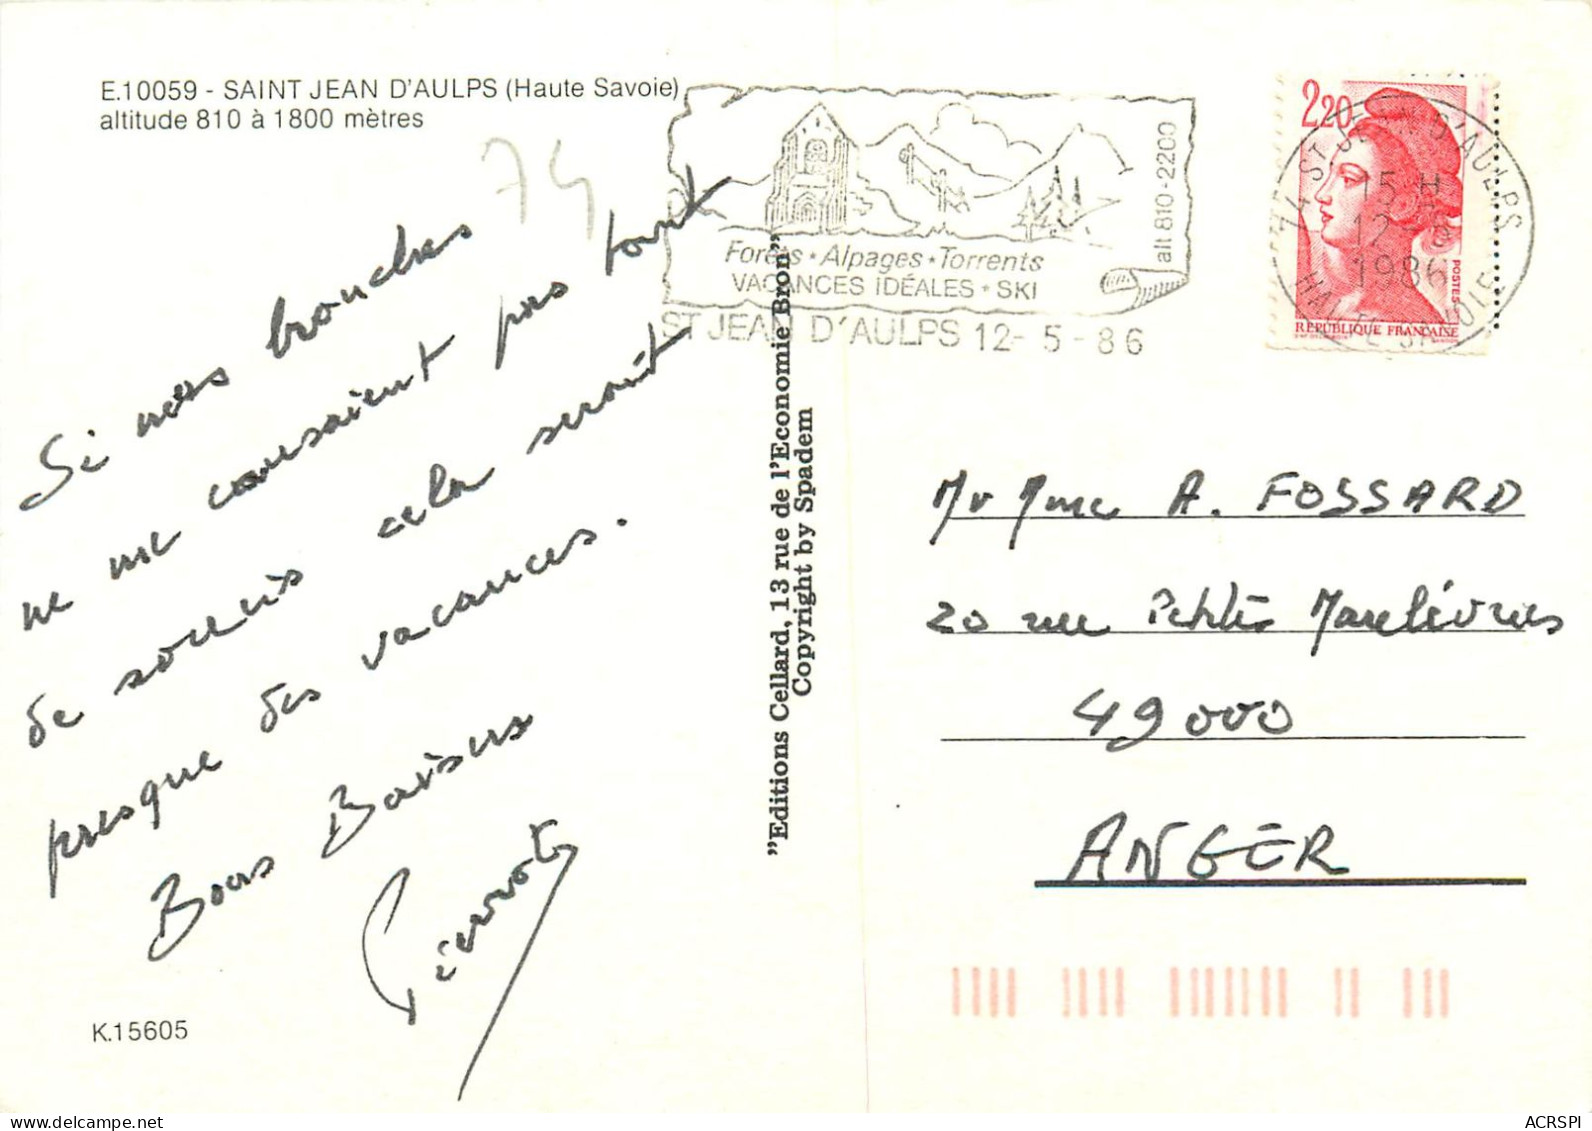 E.10059 - SAINT JEAN D'AULPS (Haute Savoie)
altitude 810 à 1800 mètres
74
Si nos bronches
ne me causaient pas tant
de soucis cela serait
presque des vacances.
Bons Baisers
Pierrot
K.15605
"Editions Cellard, 13 rue de l'Economie Bron"
Copyright by Spadem
alt 810-2200
Forêts • Alpages • Torrents
VACANCES IDÉALES • SKI
ST JEAN D'AULPS 12- 5 - 86
2,20
POSTES
RÉPUBLIQUE FRANÇAISE
74 ST JEAN D'AULPS
15 H
12 - 5
1986
HAUTE SAVOIE
Mr Mme A. FOSSARD
20 rue Petites
49000
ANGER
ACRSPI